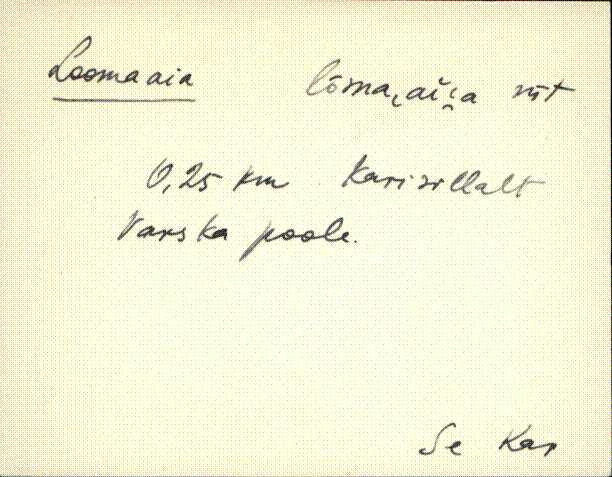 Loomaaia lōma͔aĭi̯a nīt
0,25 km Karisillalt
Varska poole.
Se Kar